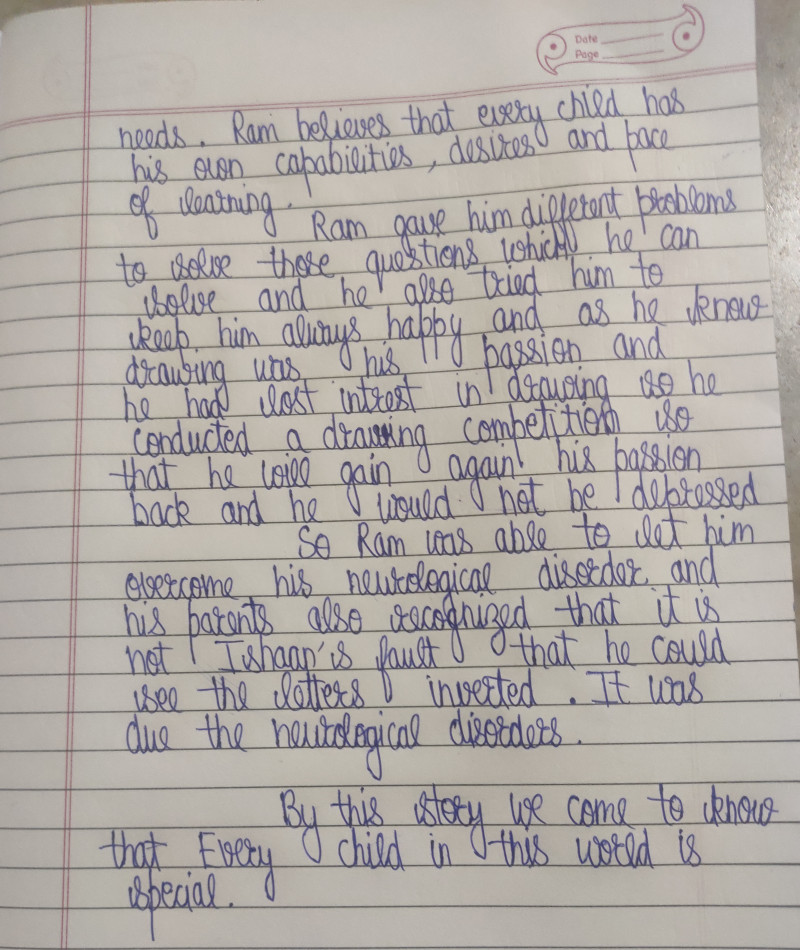 Date
Page
needs. Ram believes that every child has
his own capabilities, desires and pace
of learning.
Ram gave him different problems
to solve those questions which he can
solve and he also tried him to
keep him always happy and as he know
drawing was his passion and
he had lost intrest in drawing so he
conducted a drawing competition so
that he will gain again his passion
back and he would not be depressed
So Ram was able to let him
overcome his neurological disorder and
his parents also recognized that it is
not Ishaan's fault that he could
see the letters inverted. It was
due the neurological disorders.
By this story we come to know
that Every child in this world is
special.